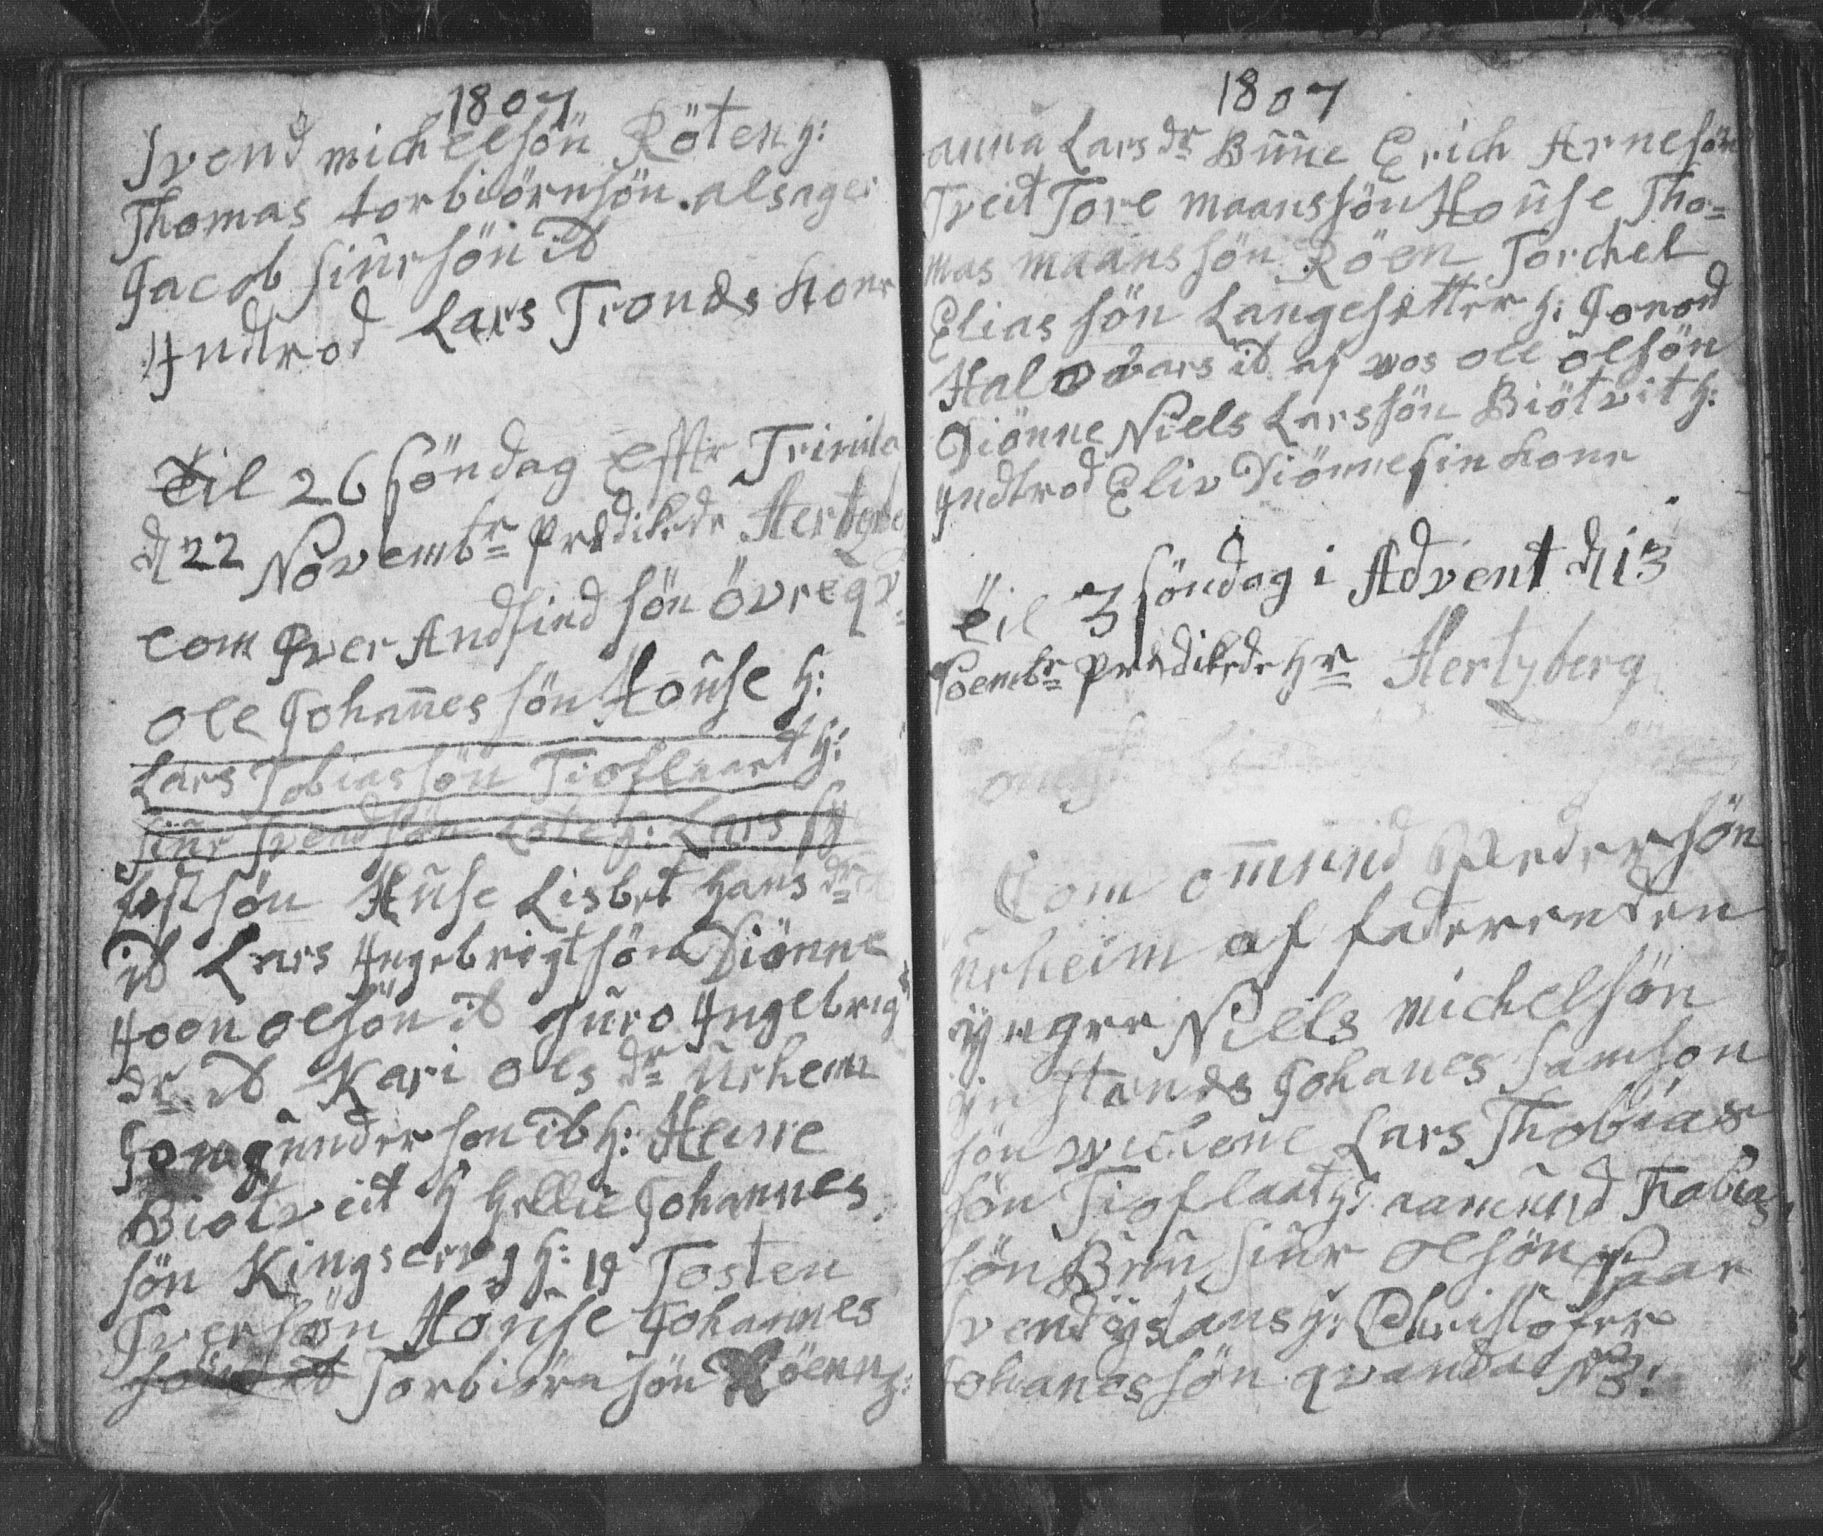 1807
Svend michelsön Röten h:
Thomas torbiörnsön alsager
Jacob siursön id
Indtrod Lars Tronds kone
Til 26 söndag efttr Trinita
d 22 Novembr predikede Hertzberg
com Iver Andfind sön övre qv=
ole Johannes sön House h:
Lars Tobiassön Tioflaat h:
siur svendsön Lote h: Lars sy
festsön Huse Lisbet Hans dr
id Lars Ingebrigtsön Diönne
Joon olsön id Guro Ingebrig
dr id Kari Ols dr Urheim
Jon gunderson ib h: Heine
Biotveit h hellie Johannes
sön Kingserv h: 19 Tosten
Iversön House Johannes
sön id Torbiörnsön Röenn h:
1807
anna Lars dr Bune Erich Arnesön
Tveit Tore maanssön House Tho=
mas maanssön Röen Torchel
Eliassön Langesetter h: Jorond
Halvars id af wos ole olsön
Diönne Niels Larssön Biötvit h:
Indtrod Eliv Diönne sin kone
Til 3 söndag i Advent d 13
Desembr predikede Hr Hertzberg
Com omund Pedersön
urheim af faderen den
yngre Niels michelsön
ystands Johanes samson
sön wichone Lars Thobias
sön Tioflaat h: aamund Tobias
sön Bru siur olsön Paar
svend ystans h: Christofer
Johanessön qvandal N 3: